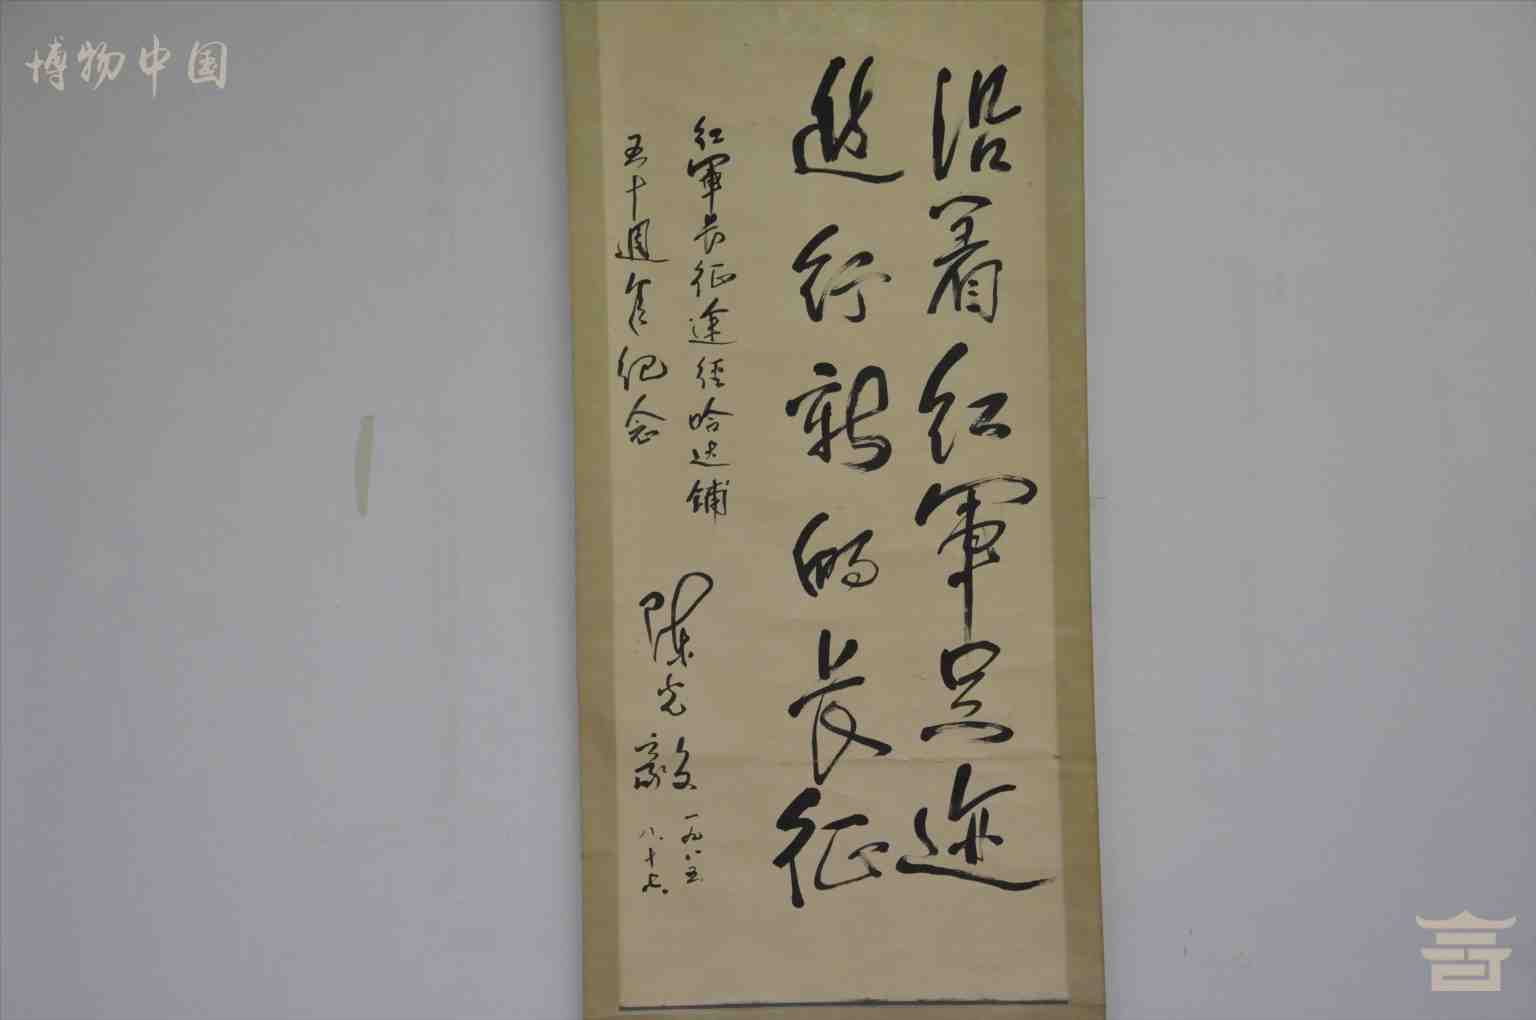 博物中国
沿着红軍足迹
进行新的长征
红軍长征途径哈达铺
五十週年纪念
陈光毅
一九八五
八.十七.